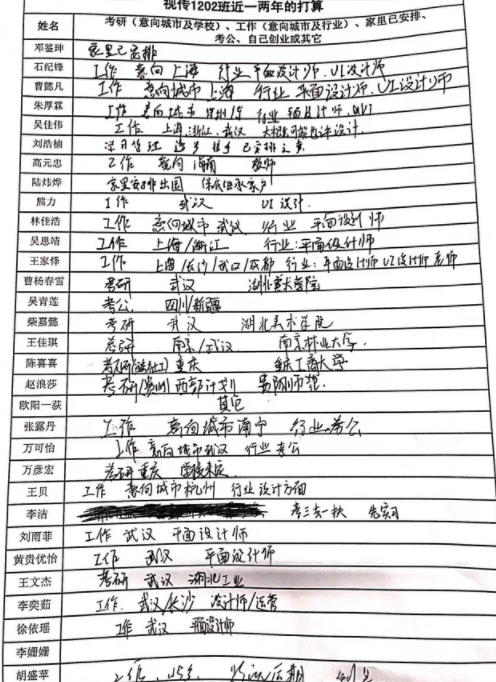 视传1202班近一两年的打算
姓名 考研（意向城市及学校）、工作（意向城市及行业）、家里已安排、
考公、自己创业或其它
邓鉴珅 家里已安排
石纪锋 工作 意向 上海 行业 平面设计师、UI设计师
曹懿凡 工作 意向城市 上海 行业 平面设计师、UI设计师
朱厚霖 工作 意向城市
吴佳伟 工作 上海、浙江、武汉
刘浩楠
高元忠 工作 意向 海南 教师
陆炜烨 家里安排出国
熊力 工作 武汉 UI设计
林佳浩 工作 意向城市 武汉 行业 平面设计师
吴思靖 工作 上海/浙江 行业：平面设计师
王家锋 工作 上海/长沙/武汉/成都 行业：平面设计师 UI设计师 老师
曹杨春雪 考研 武汉 湖北美术学院
吴青莲 考公 四川/新疆
柴嘉懿 考研 武汉 湖北美术学院
王佳琪 考研 南京/武汉 南京林业大学
陈喜喜 考研 重庆 重庆工商大学
赵浪莎 考研/贵州 西部计划 贵州师范
欧阳一荻 其它
张露丹 工作 意向城市南宁 行业考公
万可怡 工作 意向城市武汉 行业考公
万彦宏 考研重庆 学校未定
王贝 工作 意向城市杭州 行业设计方面
李洁 考三支一扶 先实习
刘雨菲 工作 武汉 平面设计师
黄贵优怡 工作 武汉 平面设计师
王文杰 考研 武汉 湖北工业
李奕茹 工作、武汉/长沙 设计师/运营
徐依瑶 工作 武汉
李姗姗
胡盛苹 工作、